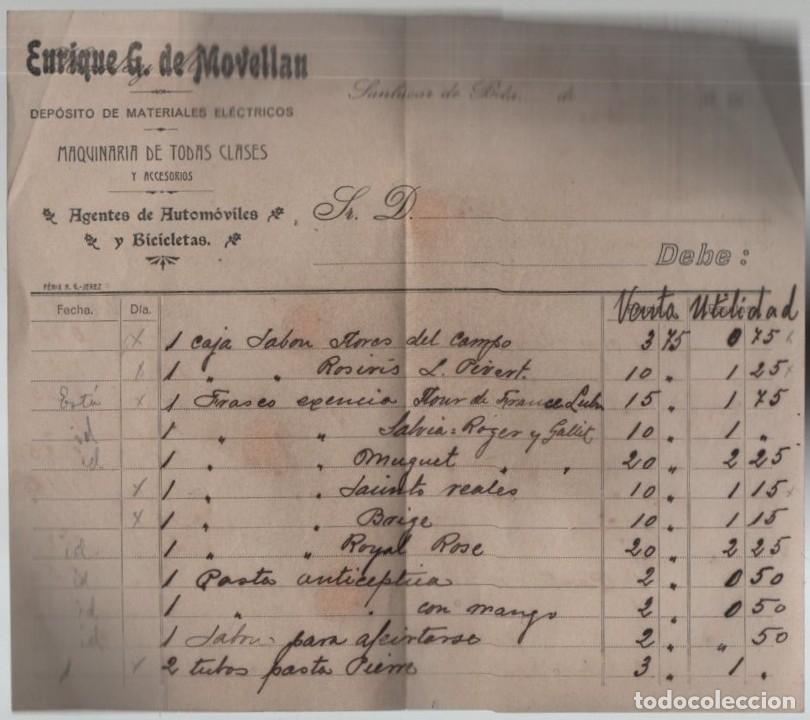 Enrique G. de Movellan
DEPÓSITO DE MATERIALES ELÉCTRICOS
Sanlúcar de Bda. de
MAQUINARIA DE TODAS CLASES
Y ACCESORIOS
Agentes de Automóviles
y Bicicletas.
Sr. D.
Debe:
FÉNIX R. G.-JEREZ
Fecha. Día. Venta Utilidad
x 1 caja Jabon Flores del Campo 3 75 0 75 x
x 1 " " Rosiris L. Pivert. 10 " 1 25 x
Está x 1 Frasco exencia Flour de France Lubn 15 " 1 75
id 1 " " Salvia = Roger y Gallet 10 " 1 "
id 1 " " Muguet " " 20 " 2 25
x 1 " " Jacinto reales 10 " 1 15 x
x 1 " " Brige 10 " 1 15
id 1 " " Royal Rose 20 " 2 25
id 1 Pasta anticeptica 2 " 0 50
id 1 " " con mango 2 " 0 50
id 1 Jabon para afeirtarse 2 " " 50
1 x 2 tubos pasta Pierre 3 " 1 "
todocoleccion